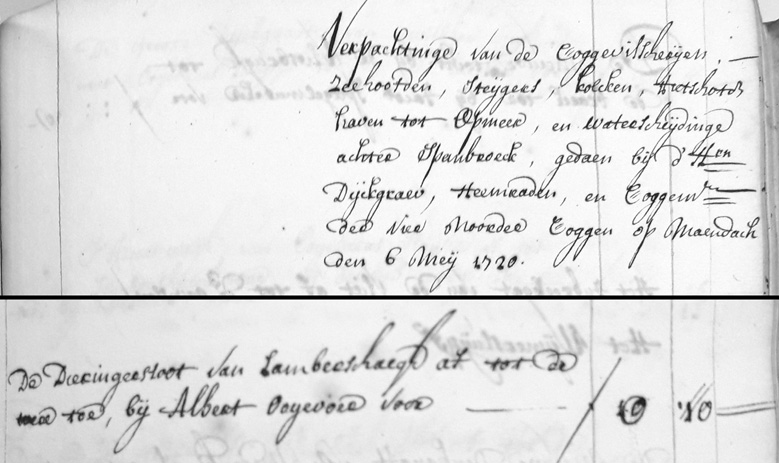 Verpachtinge van de Coggevisscherijen,
Zeehoofden, Steijgers, kolcken,
haven tot Opmeer, en waterscheijdinge
achter Spanbroeck, gedaen bij d' Hren
Dijckgraev, Heemraden, en Coggemrs
der vier Noorder Coggen op Maendach
den 6 Meij 1720.
De Dieringersloot van Lambertschaegh af tot de
toe, bij Albert Ooijevoer voor 10